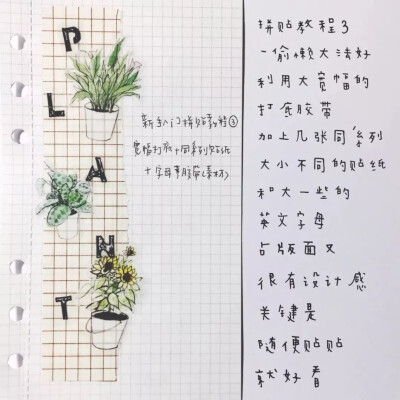 PLANT
新手入门拼贴教程③
宽幅打底+同系列贴纸
+字母胶带(素材)
拼贴教程3
一偷懒大法好
利用大宽幅的
打底胶带
加上几张同系列
大小不同的贴纸
和大一些的
英文字母
占版面又
很有设计感
关键是
随便贴贴
就好看